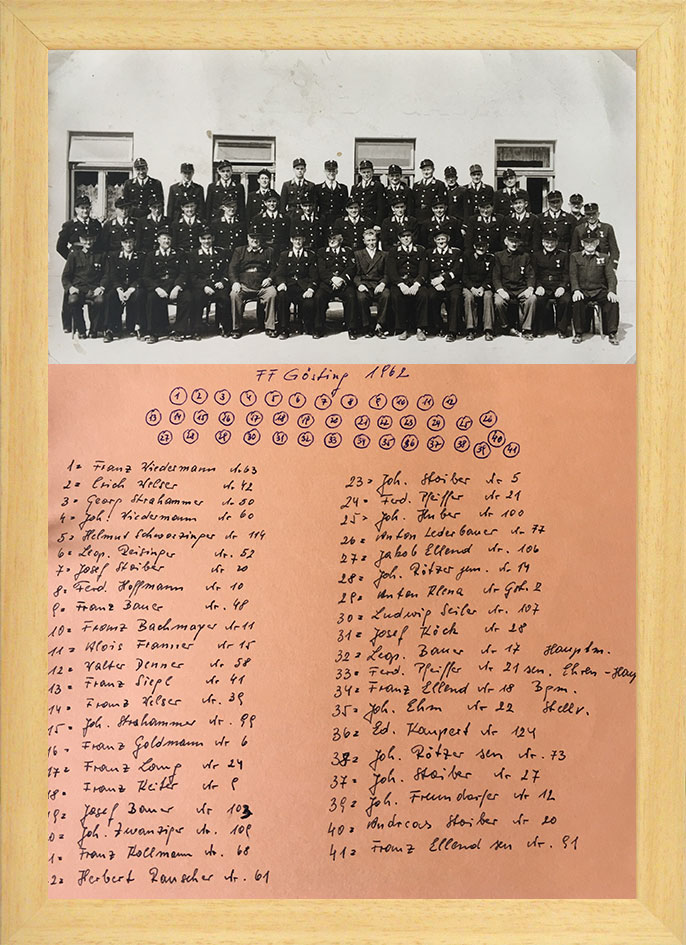 FF Gösting 1962
1 2 3 4 5 6 7 8 9 10 11 12
13 14 15 16 17 18 19 20 21 22 23 24 25 26
27 28 29 30 31 32 33 34 35 36 37 38 39 40 41
1 = Franz Wiedermann Nr. 63
2 = Erich Welser Nr. 42
3 = Georg Strahammer Nr. 50
4 = Joh. Wiedermann Nr. 60
5 = Helmut Schwarzinger Nr. 114
6 = Leop. Reisinger Nr. 52
7 = Josef Stoiber Nr 20
8 = Ferd. Hoffmann Nr. 10
9 = Franz Bauer Nr. 48
10 = Franz Bachmayer Nr 11
11 = Alois Franner Nr 15
12 = Walter Denner Nr. 58
13 = Franz Siegl Nr. 41
14 = Franz Welser Nr. 39
15 = Joh. Strahammer Nr. 99
16 = Franz Goldmann Nr. 6
17 = Franz Lang Nr 24
18 = Franz Reiter Nr 9
19 = Josef Bauer Nr 103
0 = Joh. Zwanziger Nr. 109
1 = Franz Kollmann Nr. 68
2 = Herbert Rauscher Nr. 61
23 = Joh. Stoiber Nr 5
24 = Ferd. Pfeiffer Nr 21
25 = Joh. Huber Nr 100
26 = Anton Lederbauer Nr. 77
27 = Jakob Ellend Nr. 106
28 = Joh. Rötzer jun. Nr 14
29 = Anton Klena Nr 2
30 = Ludwig Seiler Nr. 107
31 = Josef Köck Nr 28
32 = Leop. Bauer Nr 17 Hauptm.
33 = Ferd. Pfeiffer Nr 21 sen. Ehren-Hau
34 = Franz Ellend Nr 18 Bgm.
35 = Joh. Ehm Nr 22 Stellv.
36 = Ed. Kaupert Nr 124
38 = Joh. Rötzer sen Nr. 73
37 = Joh. Stoiber Nr 27
39 = Joh. Freundorfer Nr 12
40 = Andreas Stoiber Nr 20
41 = Franz Ellend sen Nr. 91